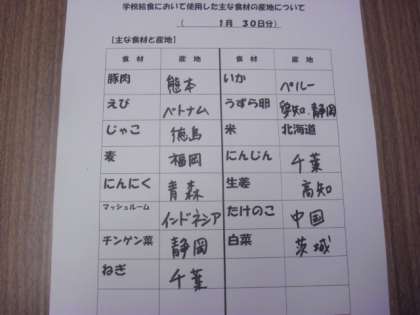 学校給食において使用した主な食材の産地について
（ 1月 30日分）
【主な食材と産地】
食材 産地 食材 産地
豚肉 熊本 いか ペルー
えび ベトナム うずら卵 愛知、静岡
じゃこ 徳島 米 北海道
麦 福岡 にんじん 千葉
にんにく 青森 生姜 高知
マッシュルーム インドネシア たけのこ 中国
チンゲン菜 静岡 白菜 茨城
ねぎ 千葉